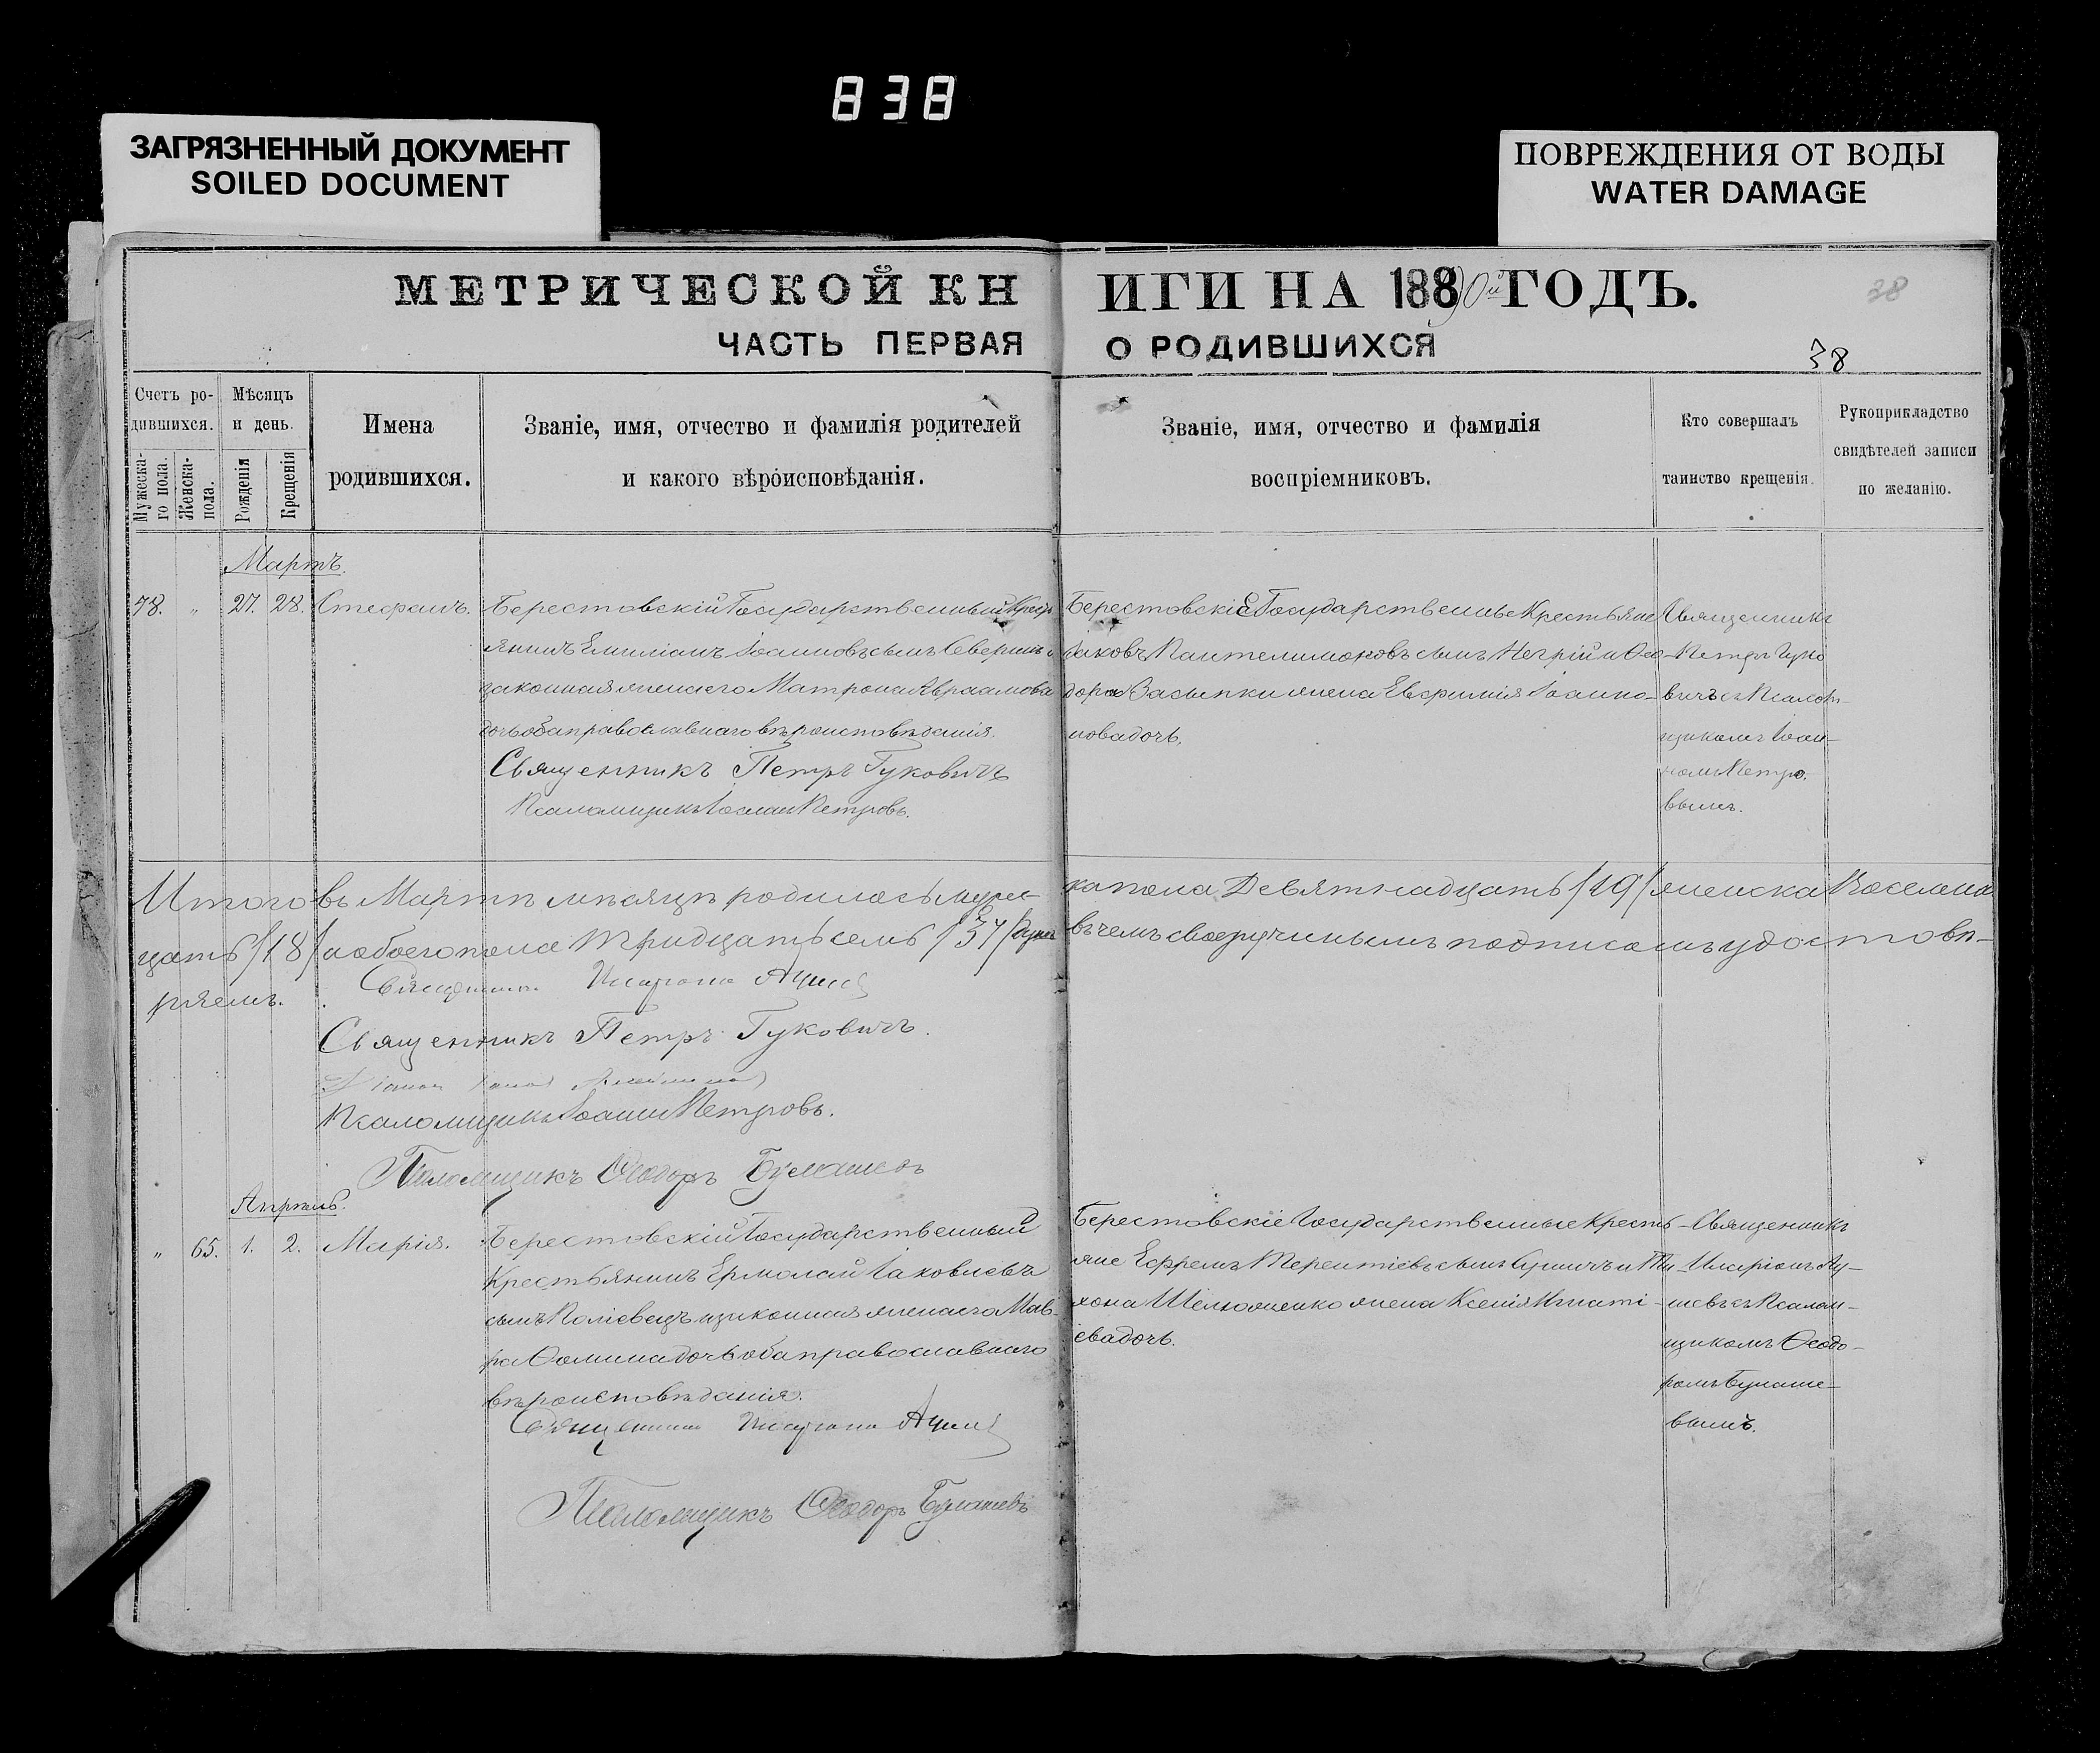 838
ЗАГРЯЗНЕННЫЙ ДОКУМЕНТ
SOILED DOCUMENT
ПОВРЕЖДЕНИЯ ОТ ВОДЫ
WATER DAMAGE
МЕТРИЧЕСКОЙ КН
ИГИ НА 1890й ГОДЪ.
38
ЧАСТЬ ПЕРВАЯ
О РОДИВШИХСЯ
38
Счетъ ро-
дившихся.
Мужеска-
го пола.
Женска-
пола.
Мѣсяцъ
и день.
Рожденія
Крещенія
Имена
родившихся.
Званіе, имя, отчество и фамилія родителей
и какого вѣроисповѣданія.
Званіе, имя, отчество и фамилія
воспріемниковъ.
Кто совершалъ
таинство крещенія.
Рукоприкладство
свидѣтелей записи
по желанію.
Мартъ.
78. " 27. 28. Стефанъ.
Берестовскій Государственный Крест
янинъ Емиліанъ Іоанновъ сынъ Северинъ и
законная жена его Матрона Авраамова
дочь оба православнаго вѣроисповѣданія.
Священникъ Петръ Гуковичъ
Псаломщикъ Іоаннъ Петровъ.
Берестовскіе Государственные Крестьяне
Іаковъ Пантелимоновъ сынъ Негрій и Ѳео-
дора Засыпки жена Евфимія Іоанно-
нова дочь.
Священникъ
Петръ Гуко
вичъ съ Псалом-
щикомъ Іоан-
номъ Петро-
вымъ.
Итого въ Мартѣ мѣсяцѣ родилось мужес-
ка пола Девятнадцать /19/ женска Восемна
цать /18/ а обоего пола тридцать семь /37/
въ чемъ своеручнымъ подписомъ удостовѣ-
ряемъ.
Священникъ Иларіонъ
Священникъ Петръ Гуковичъ.
Псаломщикъ Іоаннъ Петровъ.
Псаломщикъ Ѳеодоръ Булашевъ
Апрѣль.
" 65. 1. 2. Марія.
Берестовскій Государственный
Крестьянинъ Ермолай Іаковлевъ
сынъ Поліевецъ и законная жена его Мав-
ра Ѳомина дочь оба православнаго
вѣроисповѣданія.
Священникъ Иларіонъ
Псаломщикъ Ѳеодоръ Булашевъ
Берестовскіе Государственные Кресть-
яне Ефремъ Терентіевъ сынъ и Ти-
хона Шелюженко жена Ксенія Игнаті-
ева дочь.
Священникъ
Иларіонъ
съ Псалом-
щикомъ Ѳеодо-
ромъ Булаше-
вымъ.